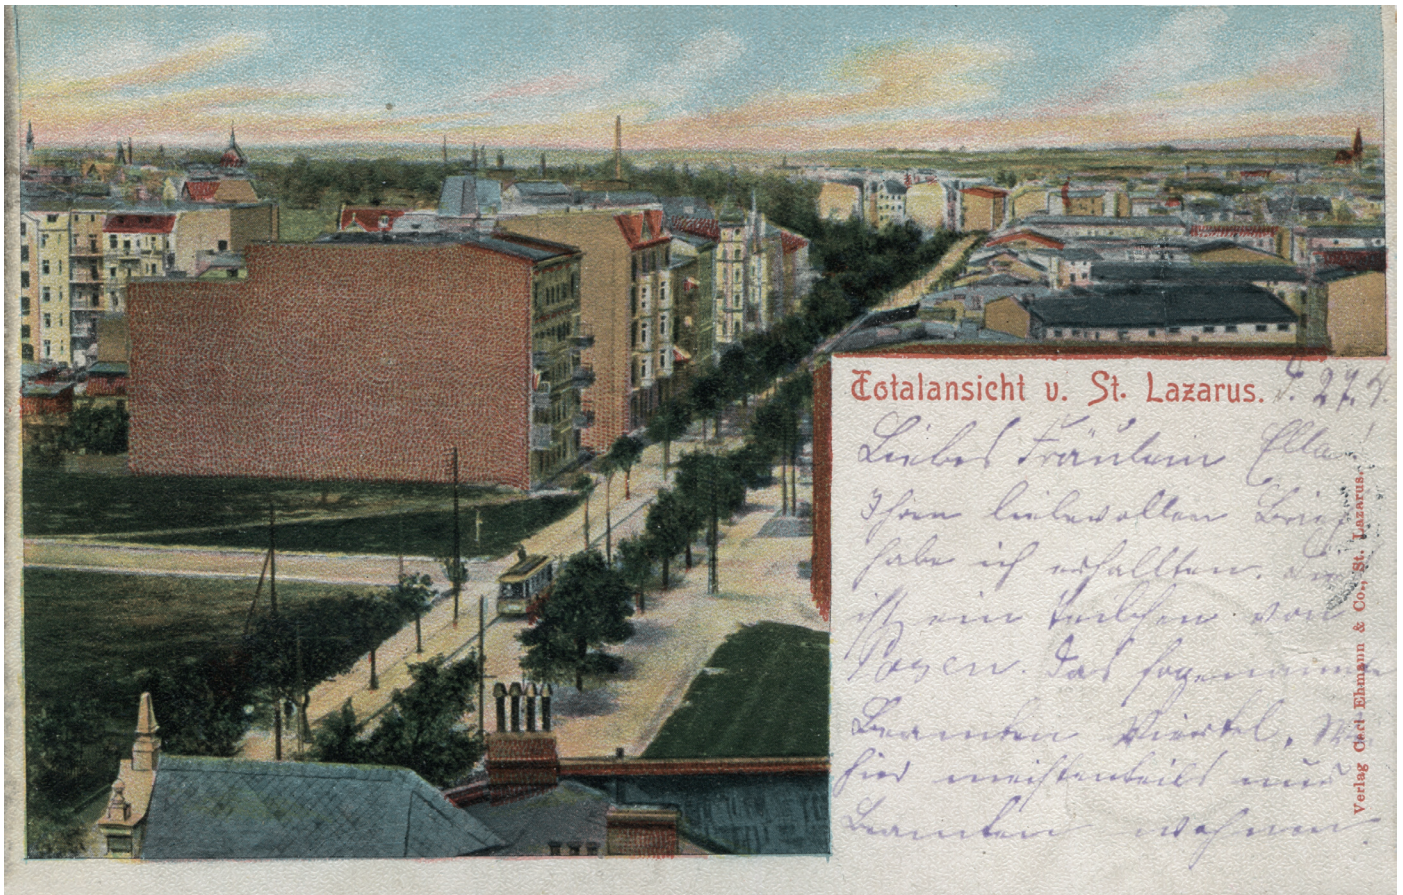 Totalansicht v. St. Lazarus.
27.4.
Liebes Fräulein Ella!
Ihren liebevollen Brief
habe ich erhallten.
ist ein teilchen von
Posen. Das sogenannte
Beamten Viertel.
hier meistenteils nur
Beamten wohnen
Verlag Carl Ehmann & Co., St. Lazarus.